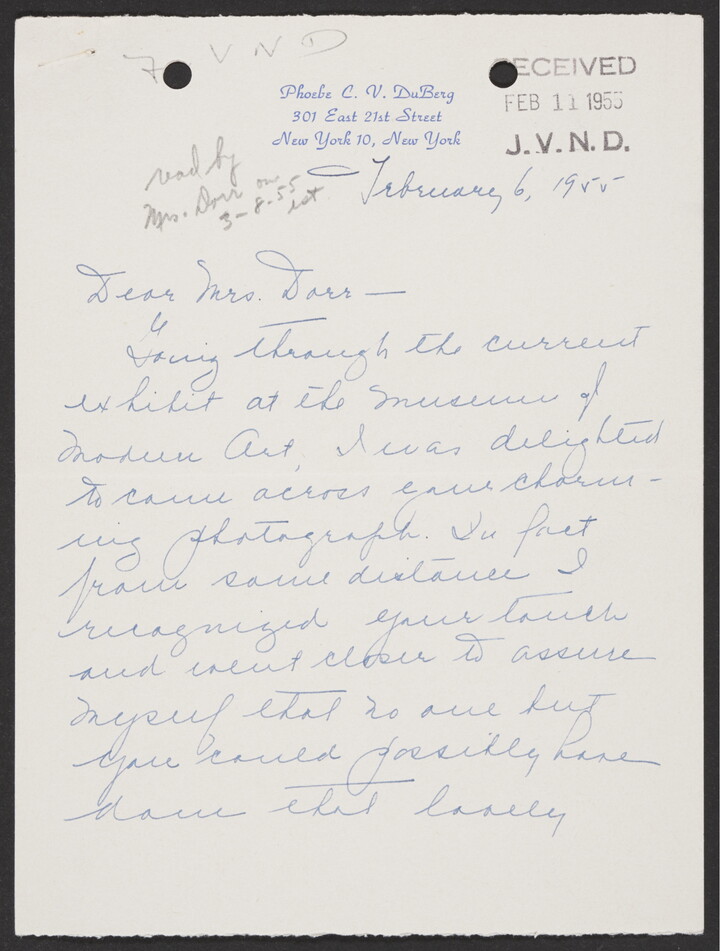 J V N D
RECEIVED
FEB 11 1955
J. V. N. D.
Phoebe C. V. DuBerg
301 East 21st Street
New York 10, New York
read by
Mrs. Dorr on
3-8-55
February 6, 1955
Dear Mrs. Dorr —
Going through the current
exhibit at the Museum of
Modern Art, I was delighted
to come across your charm-
ing photograph. In fact
from some distance I
recognized your touch
and went closer to assure
myself that no one but
you could possibly have
done that lovely